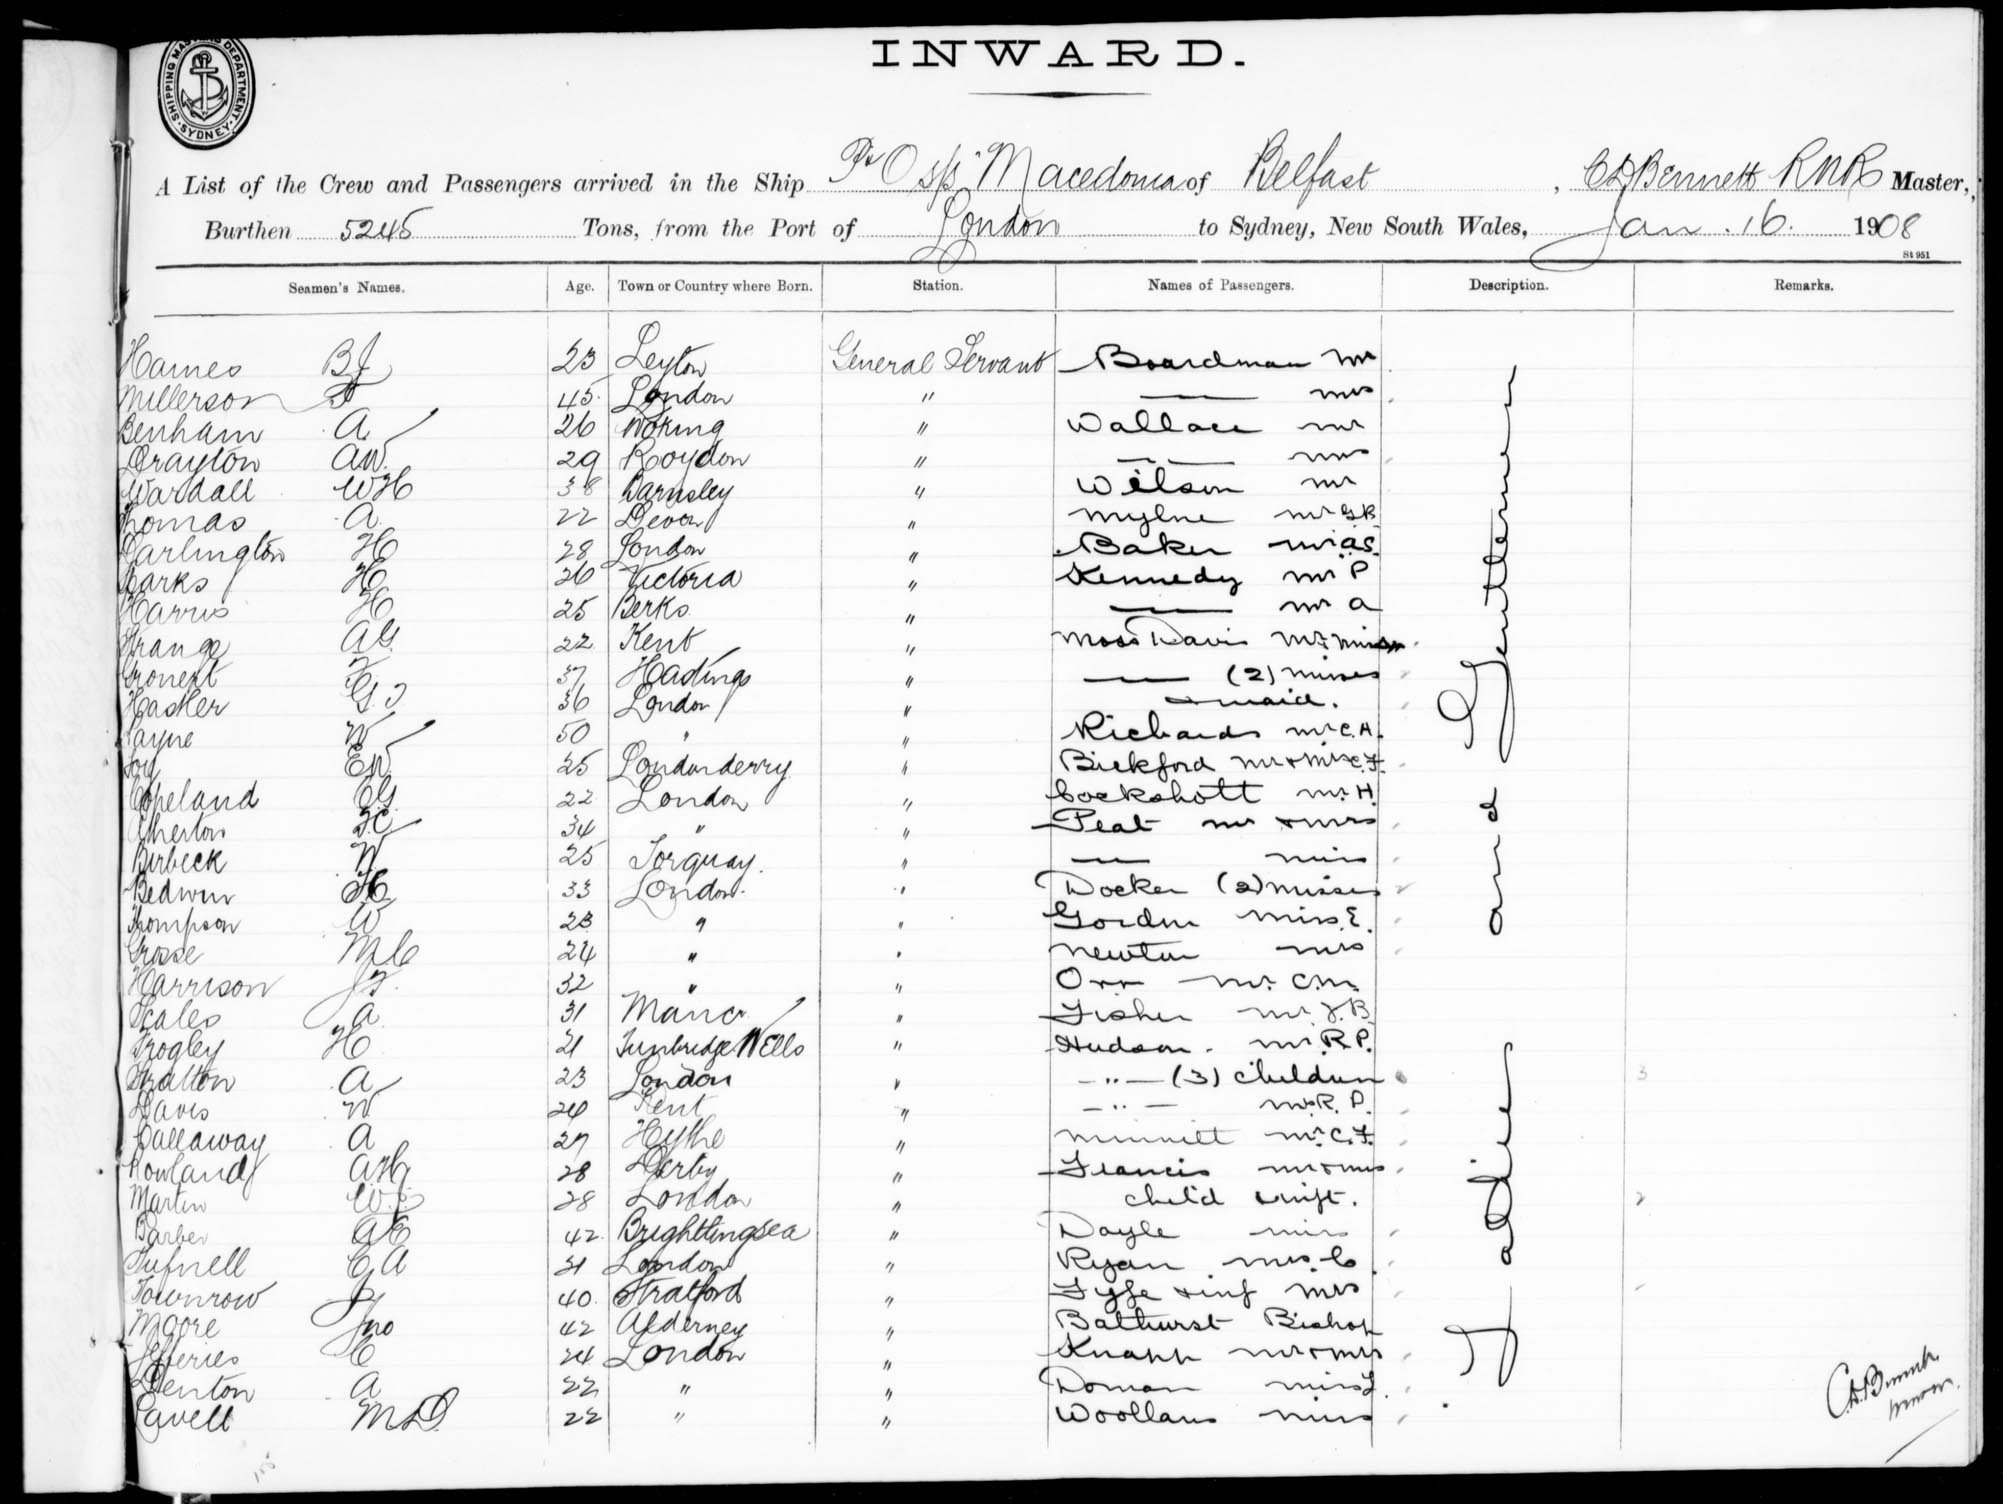 SHIPPING MASTERS DEPARTMENT. SYDNEY
INWARD.
A List of the Crew and Passengers arrived in the Ship P & O s/s "Macedonia of Belfast, C D Bennett RNR Master,
Burthen 5245 Tons, from the Port of London to Sydney, New South Wales, Jan. 16. 1908
St 951
Seamen's Names. Age. Town or Country where Born. Station. Names of Passengers. Description. Remarks.
Hames BJ 23 Leyton General Servant Boardman Mr
Millerson 45 London " —— Mrs
Benham A 26 Woking " Wallace Mr
Drayton AW. 29 Roydon " —— Mrs
Wardall WH 38 Barnsley " Wilson Mr
Thomas A 22 Devon " Mylne Mr G B
Darlington H 28 London " Baker Mr A.S.
Parks H 26 Victoria " Kennedy Mr P
Harris H 25 Berks " —— Mr A
Strange AG 22 Kent " Moss Davis Mr
37 Hastings " —— (2) Misses
Hasker G J 36 London " & maid.
Payne W 50 " " Richards Mr C.A.
Foy EW 25 Londonderry " Bickford Mr & Mrs C.F.
Copeland 22 London " Cockshott Mr H.
Atherton 34 " " Peat Mr & Mrs
Birbeck W 25 Torquay. " —— Miss
Bedwin H 33 London " Docker (2) Misses
Thompson W 23 " " Gordon Miss E.
Grosse M C 24 " " Newton Mrs
Harrison J F. 32 " " Orr Mr. C.M.
Scales A 31 Mancr " Fisher Mr. J. B.
Frogley H 21 Tunbridge Wells " Hudson. Mr. R P.
Stratton A 23 London " — " — (3) Children 3
Davis W 24 Kent " — " — Mrs R. P.
Callaway A 27 Hythe " Minnitt Mr. C.F.
Rowland AH 28 Derby " Francis Mr & Mrs
Martin W. 28 London " child & inft. 2
Barber AE 42 Brightlingsea " Doyle Miss
Tufnell C A 21 London " Ryan Mrs C
Townrow J 40 Stratford " Fyffe & inf Mrs
Moore Jno 42 Alderney " Bathurst Bishop
Jefferies C 24 London " Knapp Mr & Mrs
Denton A 22 " " Doman Miss
Lavell M D. 22 " " Woollams Miss
Ladies and Gentlemen
C.D. Bennett